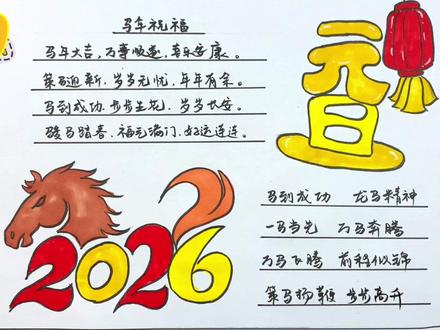 马年祝福
马年大吉，万事顺遂，喜乐安康。
策马迎新，岁岁无忧，年年有余。
马到成功，步步生花，岁岁长安。
骏马踏春，福气满门，好运连连。
元
旦
2026
马到成功 龙马精神
一马当先 万马奔腾
万马飞腾 前程似锦
策马扬鞭 步步高升